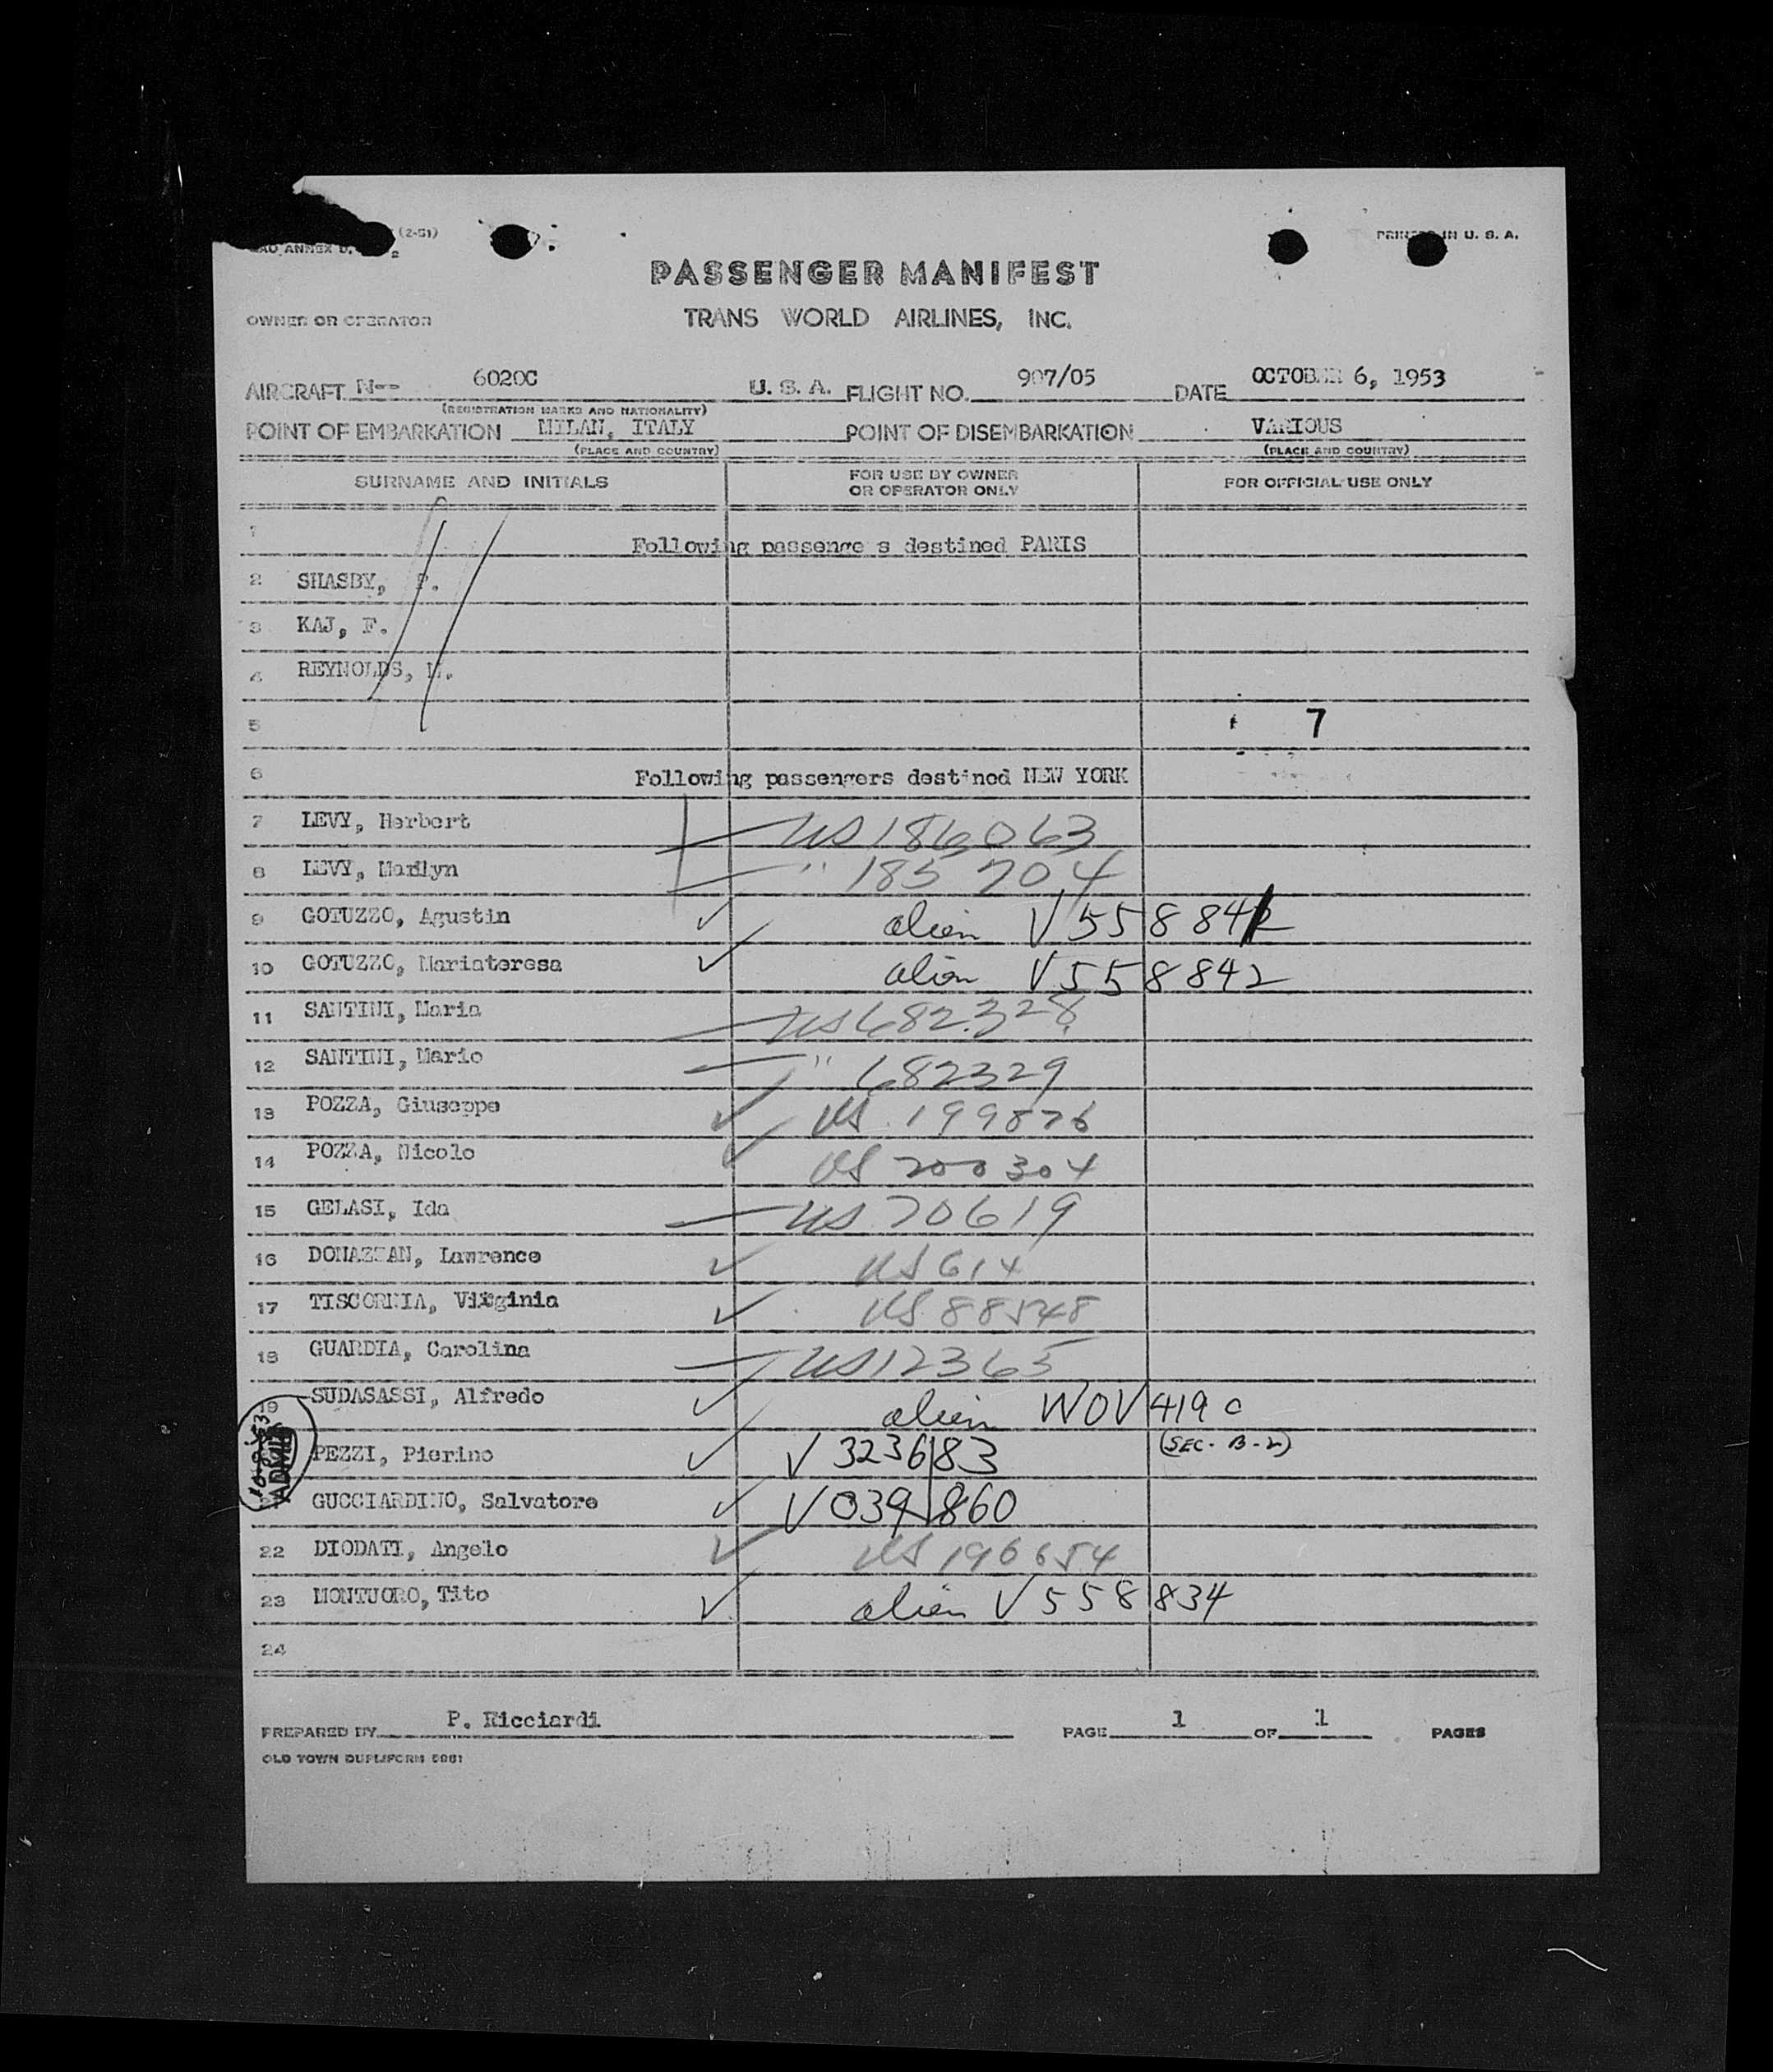 (2-51)
PRINTED IN U. S. A.
ANNEX
PASSENGER MANIFEST
OWNER OR OPERATOR
TRANS WORLD AIRLINES, INC.
AIRCRAFT N-- 6020C U. S. A. FLIGHT NO. 907/05 DATE OCTOBER 6, 1953
(REGISTRATION MARKS AND NATIONALITY)
POINT OF EMBARKATION MILAN, ITALY POINT OF DISEMBARKATION VARIOUS
(PLACE AND COUNTRY) (PLACE AND COUNTRY)
SURNAME AND INITIALS FOR USE BY OWNER OR OPERATOR ONLY FOR OFFICIAL USE ONLY
1 Following passenge s destined PARIS
2 SHASBY, P.
3 KAJ, F.
4 REYNOLDS,
5 7
6 Following passengers destined NEW YORK
7 LEVY, Herbert US 186063
8 LEVY, Marilyn " 185704
9 GOTUZZO, Agustin alien V558841
10 GOTUZZO, Mariateresa alien V558842
11 SANTINI, Maria US 682328
12 SANTINI, Mario " 682329
13 POZZA, Giuseppe US 199876
14 POZZA, Nicolo US 200304
15 GELASI, Ida US 70619
16 DONAZZAN, Lawrence US 614
17 TISCORNIA, Virginia US 88548
18 GUARDIA, Carolina US 12365
19 SUDASASSI, Alfredo alien WOV 419 c
PEZZI, Pierino V 323683 (SEC. B-2)
GUCCIARDINO, Salvatore V 039860
ADMIT
22 DIODATI, Angelo US 196654
23 MONTUORO, Tito alien V 558834
24
PREPARED BY P. Ricciardi PAGE 1 OF 1 PAGES
OLD TOWN DUPLIFORM